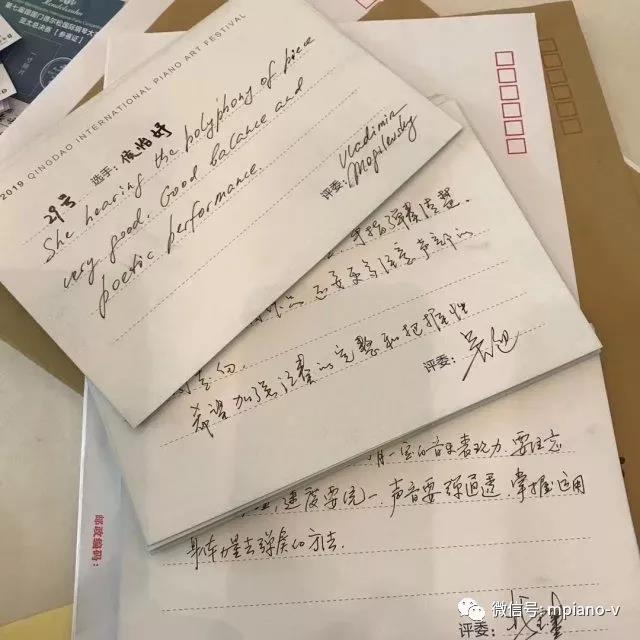 第七届德国门德尔松国际钢琴大
亚太总决赛「参赛证」
2019 QINGDAO INTERNATIONAL PIANO ART FESTIVAL
29号 选手：侯怡妤
She hearing the polyphony of piece
very good. Good balance and
poetic performance.
评委： Vladimir
Mogilevsky
手指弹奏清楚。
还要更多注意声部的
希望加强演奏的完整和把握性
评委：
有一定的音乐表现力，要注意
速度要统一，声音要弹通透，掌握运用
身体力量去弹奏的方法.
评委：
邮政编码：
微信号: mpiano-v